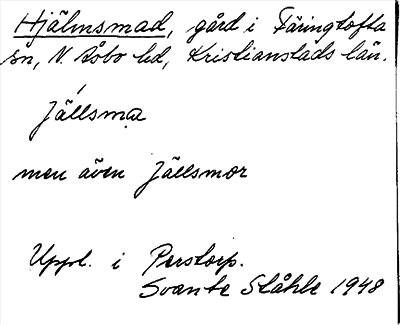 Hjälmsmad, gård i Färingtofta
sn, N. Åsbo hd, Kristianstads län.
Jällsma
men även Jällsmor
Uppl. i Perstorp.
Svante Ståhle 1948